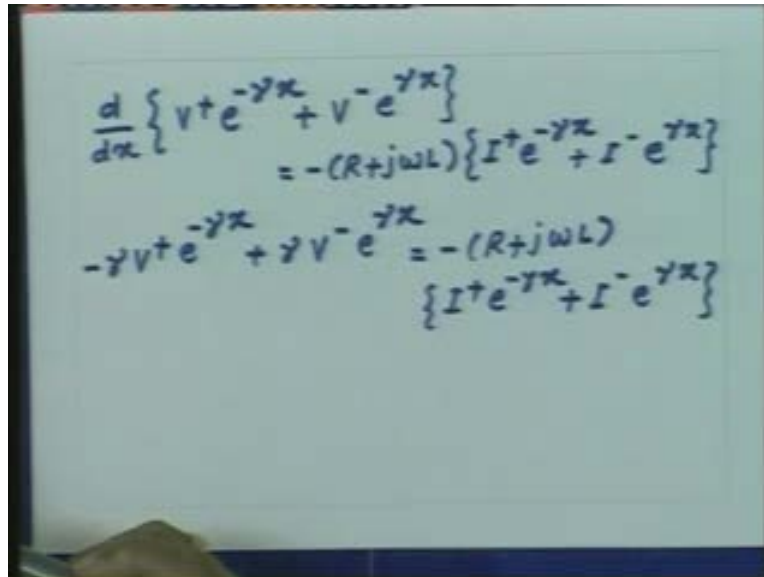 d/dx { V⁺e^{-γx} + V⁻e^{γx} }
= -(R+jωL) { I⁺e^{-γx} + I⁻e^{γx} }
-γV⁺e^{-γx} + γV⁻e^{γx} = -(R+jωL)
{ I⁺e^{-γx} + I⁻e^{γx} }